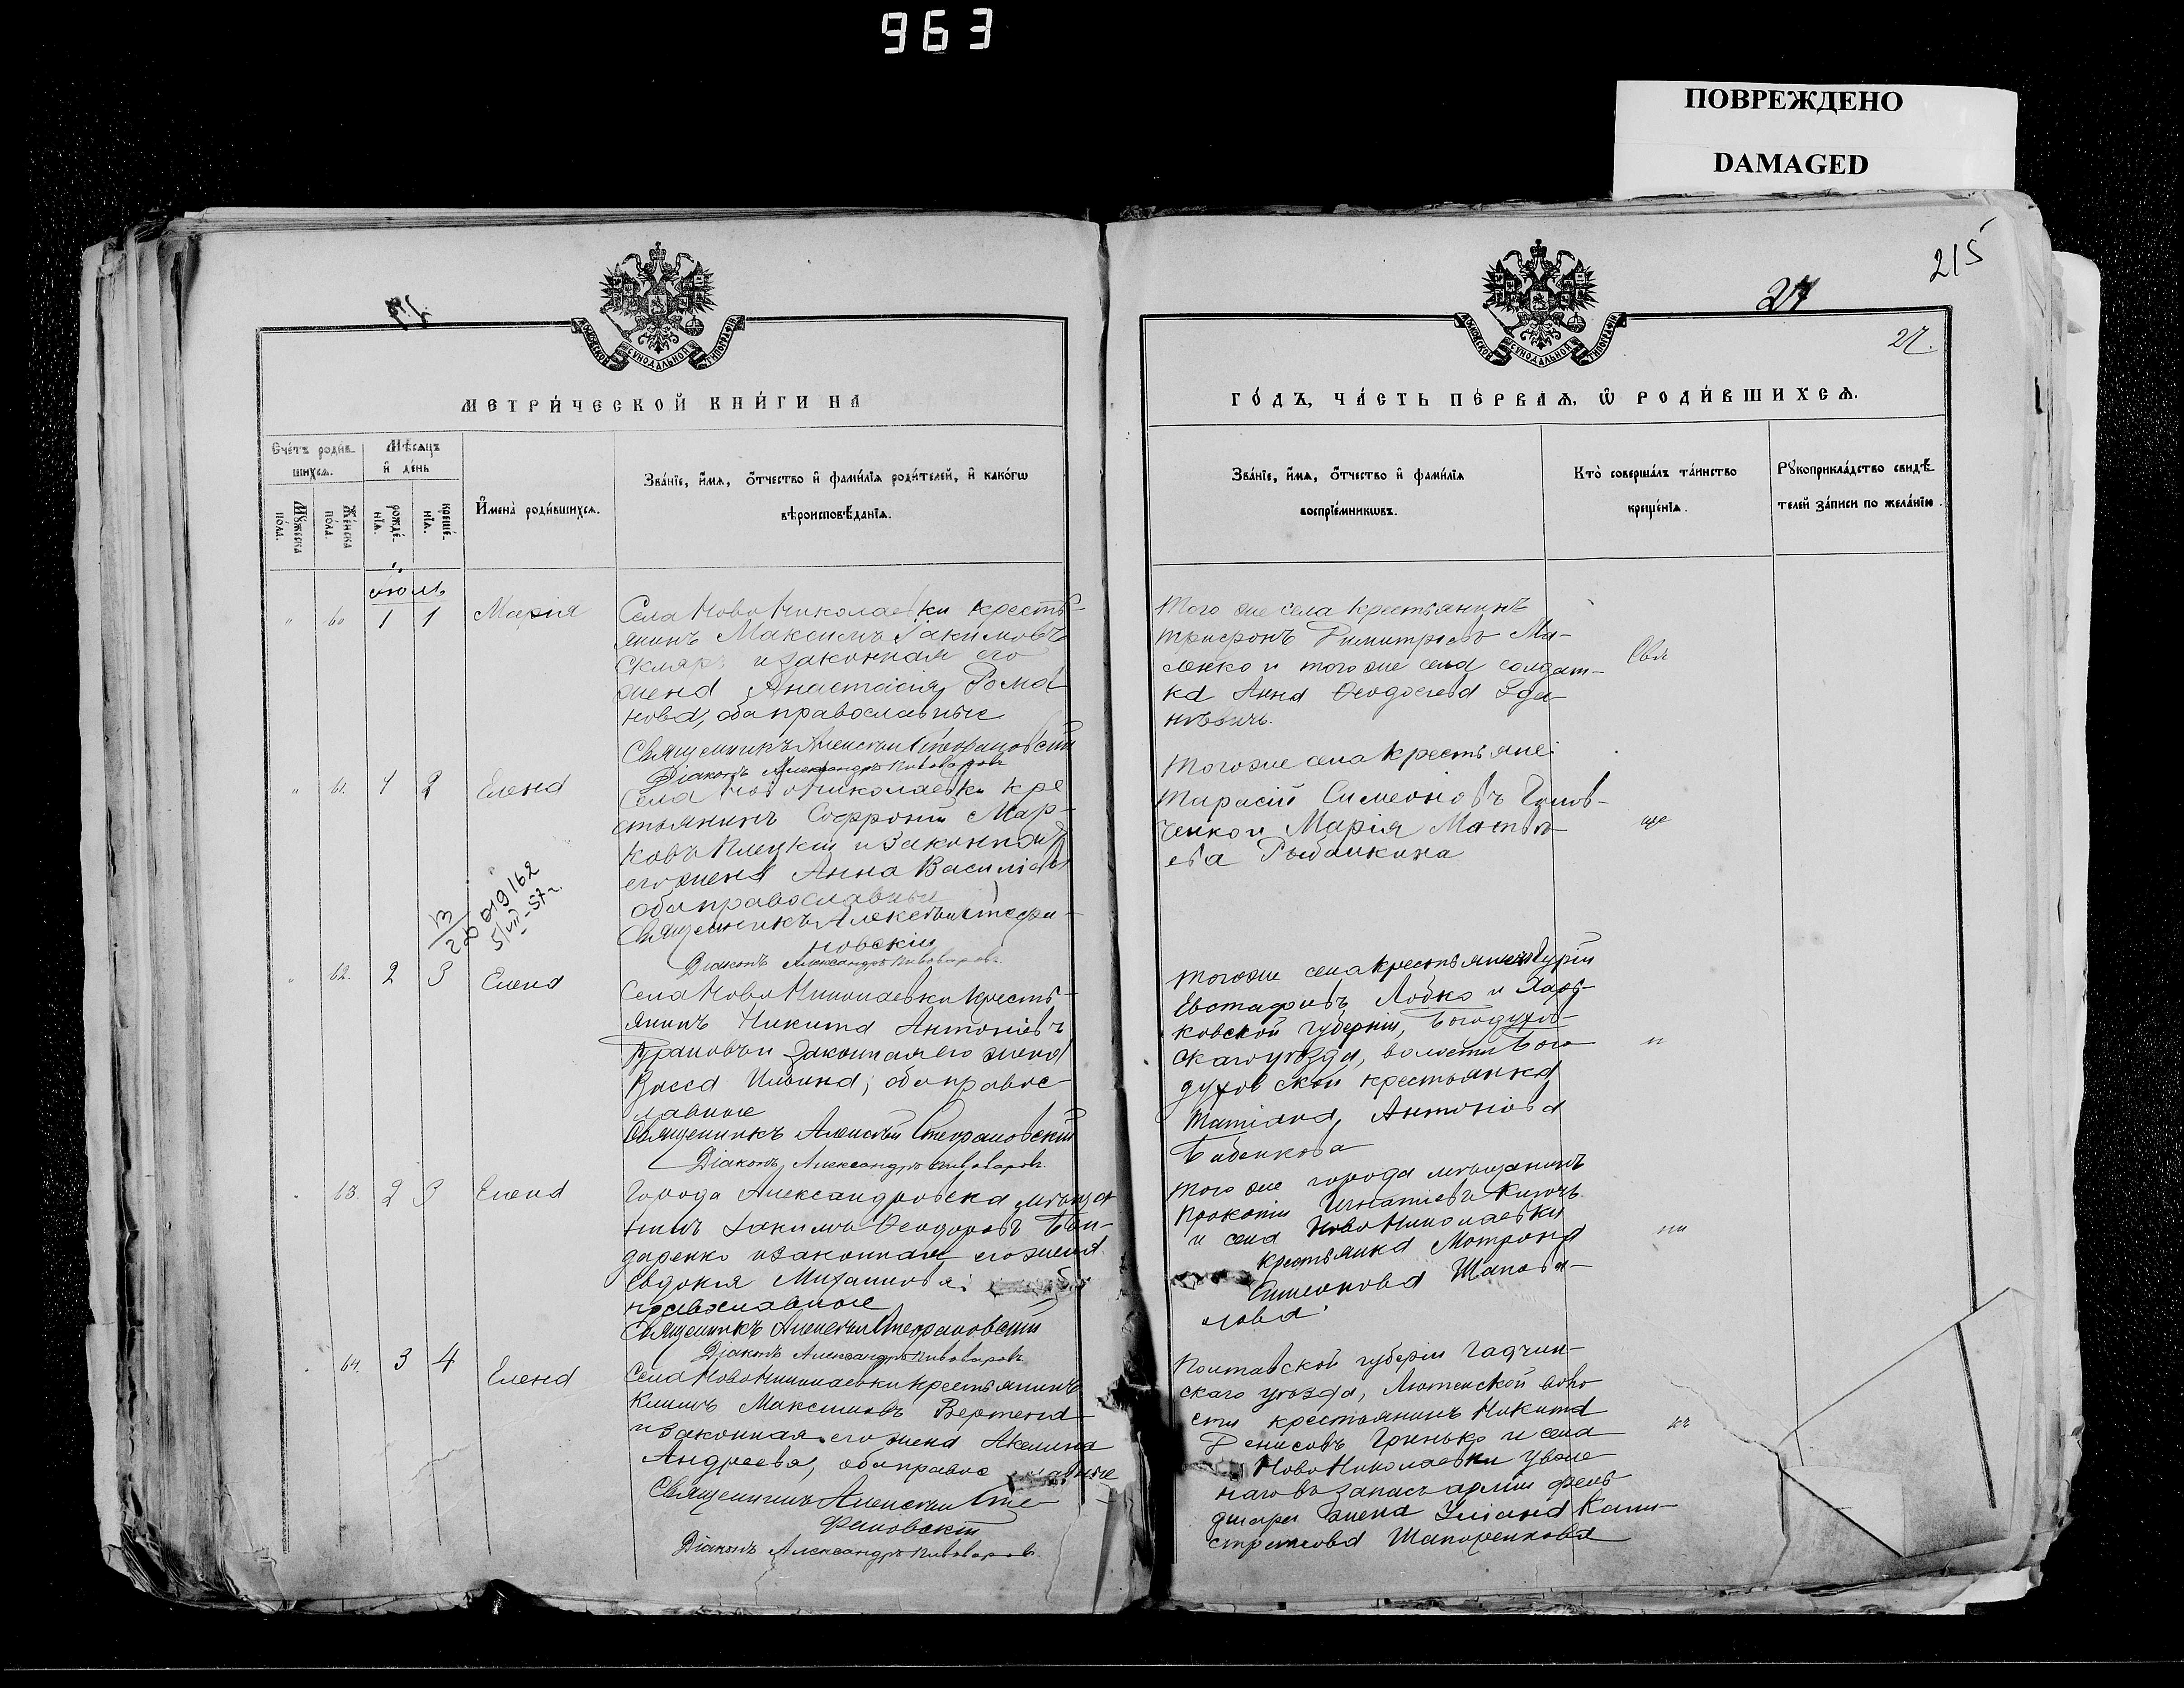 963
ПОВРЕЖДЕНО
DAMAGED
215
27
27.
МОСКОВСКОЙ СУНОДАЛЬНОЙ ТИПОГРАФІИ
МОСКОВСКОЙ СУНОДАЛЬНОЙ ТИПОГРАФІИ
МЕТРИ́ЧЕСКОЙ КНИ́ГИ НА
ГО́ДЪ, ЧА́СТЬ ПЕ́РВАѦ, Ѡ РОДИ́ВШИХСѦ.
Сче́тъ роди́в-
шихсѧ.
Мѣ́сѧцъ
и҆ де́нь
Мꙋ́жеска по́ла.
Же́нска по́ла.
рожде́-нїѧ.
креще́-нїѧ.
И҆мена̀ роди́вшихсѧ.
Зва́нїе, и҆́мѧ, ѻ҆́тчество и҆ фами́лїѧ роди́телей, и҆ како́гѡ
вѣроисповѣ́данїѧ.
Зва́нїе, и҆́мѧ, ѻ҆́тчество и҆ фами́лїѧ
воспрїе́мникѡвъ.
Кто̀ соверша́лъ та́инство
креще́нїѧ.
Рꙋкоприкла́дство свидѣ́-
телей за́писи по жела́нїю.
Июль
60 1 1 Марія
Села Ново Николаевки кресть-
янинъ Максимъ Іакимовъ
Скляръ и законная его
жена Анастасія Рома
нова, оба православные
Священникъ Алексѣй Стефановскій
Діаконъ Александръ Пивоваровъ
Того же села крестьянинъ
Трифонъ Димитріевъ Ма-
сенко и того же села солдат-
ка Анна Ѳеодосіева
Свя
61. 1 2 Елена
Села Ново Николаевки кре
стьянинъ Софроній Мар-
ковъ и законная
его жена Анна Василіева
оба православные
Священникъ Алексѣй Стефа-
новскій
Діаконъ Александръ Пивоваровъ
Того же села крестьяне:
Тарасій Симеоновъ
ченко и Марія Матѳѣ-
ева Рыбалкина
ще
13
20 019162
5/VIII-57г.
62. 2 3 Елена
Села Ново Николаевки кресть-
янинъ Никита Антоніевъ
и законная его жена
Васса Ильина, оба правос-
лавные
Священникъ Алексѣй Стефановскій
Діаконъ Александръ Пивоваровъ.
Того же села крестьянинъ Гурій
Евстафіевъ Лобко и Харь-
ковской губерніи, Богодухов-
скаго уѣзда, волости Бого
духовской крестьянка
Татіана Антоніева
Бабенкова
н
63. 2 3 Елена
Города Александровска мѣща
нинъ Іакимъ Ѳеодоровъ Бон-
даренко и законная его жена
Евдокія Михаилова;
православные
Священникъ Алексѣй Стефановскій
Діаконъ Александръ Пивоваровъ.
Того же города мѣщанинъ
Прокопій Игнатіевъ
и села Ново Николаевки
крестьянка Матрона
Симеонова Шапова-
лова.
ни
64. 3 4 Елена
Села Ново Николаевки крестьянинъ
Климъ Максимовъ
и законная его жена Акилина
Андреева, оба правос лавные
Священникъ Алексѣй Сте-
фановскій
Діаконъ Александръ Пивоваровъ.
Полтавской губерніи Гадяч-
скаго уѣзда, Лютенской воло
сти крестьянинъ Никита
Денисовъ Гринько и села
Ново Николаевки уволе
наго въ запасъ арміи фель
дшера жена Уліана Кали-
стратова Шапоренкова
къ